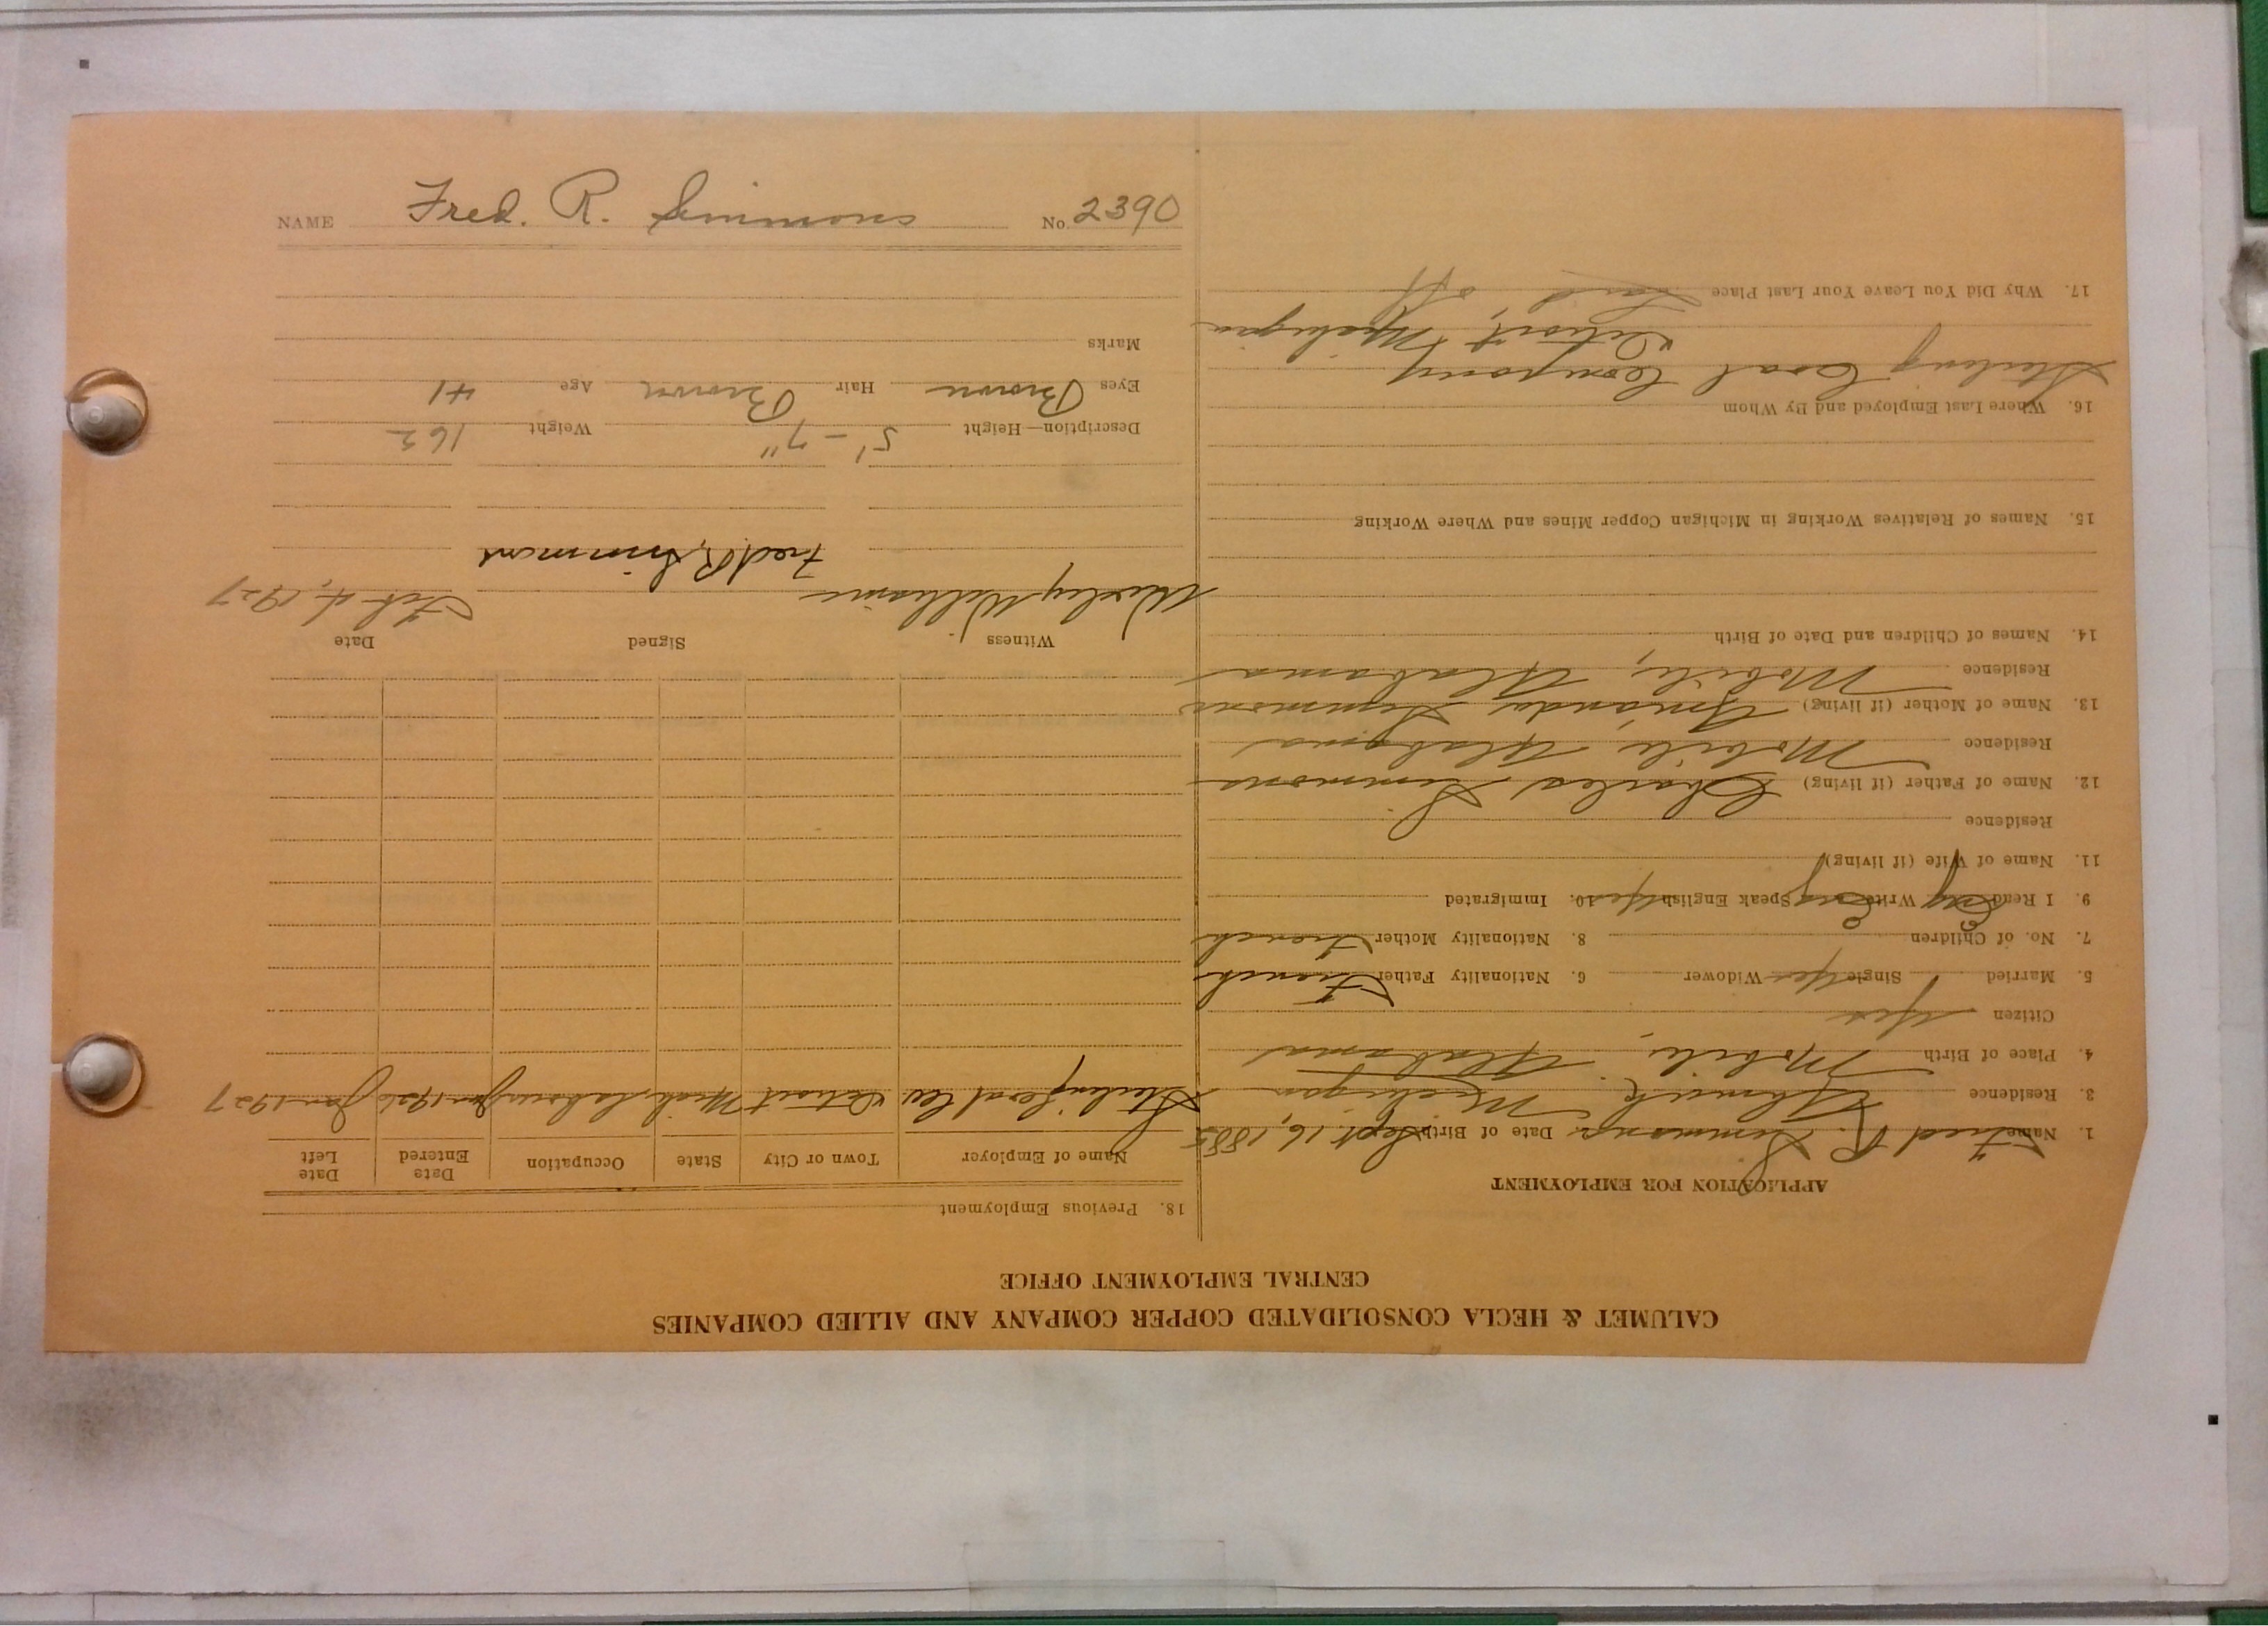 CALUMET & HECLA CONSOLIDATED COPPER COMPANY AND ALLIED COMPANIES
CENTRAL EMPLOYMENT OFFICE
APPLICATION FOR EMPLOYMENT
1. Name Fred R. Simmons Date of Birth Sept. 16, 1885
3. Residence Michigan
4. Place of Birth Mobile, Alabama
Citizen Yes
5. Married Single Yes Widower 6. Nationality Father French
7. No. of Children 8. Nationality Mother French
9. I Read Eng Write Eng Speak English Yes 10. Immigrated
11. Name of Wife (if living)
Residence
12. Name of Father (if living) Charles Simmons
Residence Mobile Alabama
13. Name of Mother (if living) Simmons
Residence Mobile, Alabama
14. Names of Children and Date of Birth
15. Names of Relatives Working in Michigan Copper Mines and Where Working
16. Where Last Employed and By Whom
Sterling Coal Company
Detroit, Michigan
17. Why Did You Leave Your Last Place Laid off
18. Previous Employment
Name of Employer Town or City State Occupation Date Entered Date Left
Sterling Coal Co Detroit Mich Laborer Jan 1926 Jan 1927
Witness Signed Date
Williams Fred R. Simmons Feb 4, 1927
Description—Height 5'-7" Weight 162
Eyes Brown Hair Brown Age 41
Marks
NAME Fred. R. Simmons No. 2390